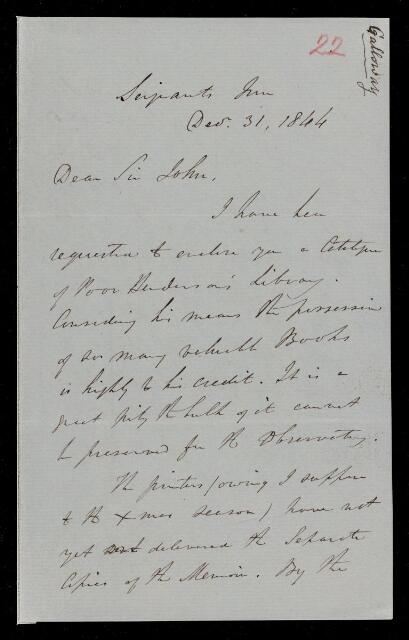 22
Galloway
Serjeants Inn
Dec. 31, 1844
Dear Sir John,
I have been
requested to enclose you a Catalogue
of Poor Henderson's Library.
Considering his means the possession
of so many valuable Books
is highly to his credit. It is a
great pity the bulk of it cannot
be preserved for the Observatory.
The printers (owing I suppose
to the Xmas season) have not
yet delivered the Separate
Copies of the Memoir. By the